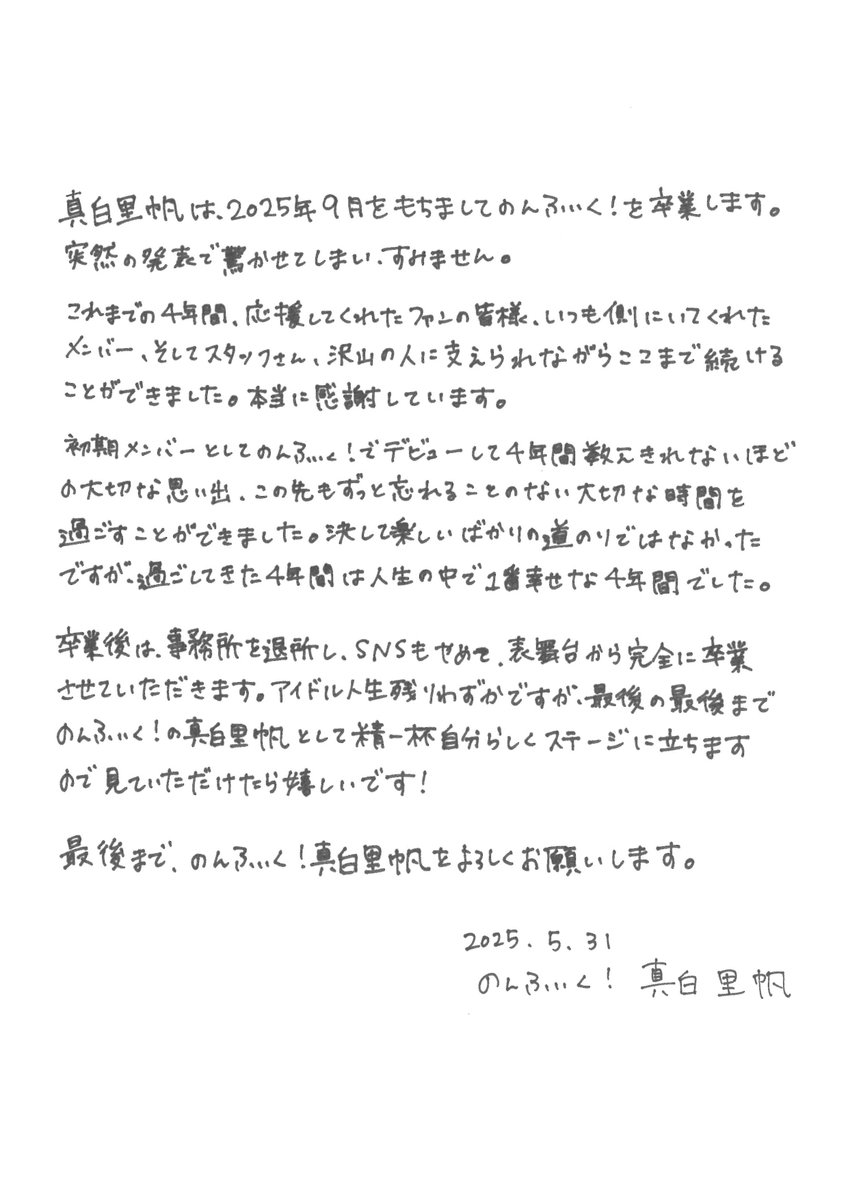 真白里帆は、2025年9月をもちましてのんふぃく!を卒業します。
突然の発表で驚かせてしまい、すみません。
これまでの4年間、応援してくれたファンの皆様、いつも側にいてくれた
メンバー、そしてスタッフさん、沢山の人に支えられながらここまで続ける
ことができました。本当に感謝しています。
初期メンバーとしてのんふぃく!でデビューして4年間数えきれないほど
の大切な思い出、この先もずっと忘れることのない大切な時間を
過ごすことができました。決して楽しいばかりの道のりではなかった
ですが、過ごしてきた4年間は人生の中で1番幸せな4年間でした。
卒業後は、事務所を退所し、SNSもやめて、表舞台から完全に卒業
させていただきます。アイドル人生残りわずかですが、最後の最後まで
のんふぃく!の真白里帆として精一杯自分らしくステージに立ちます
ので見ていただけたら嬉しいです!
最後まで、のんふぃく!真白里帆をよろしくお願いします。
2025.5.31
のんふぃく! 真白里帆